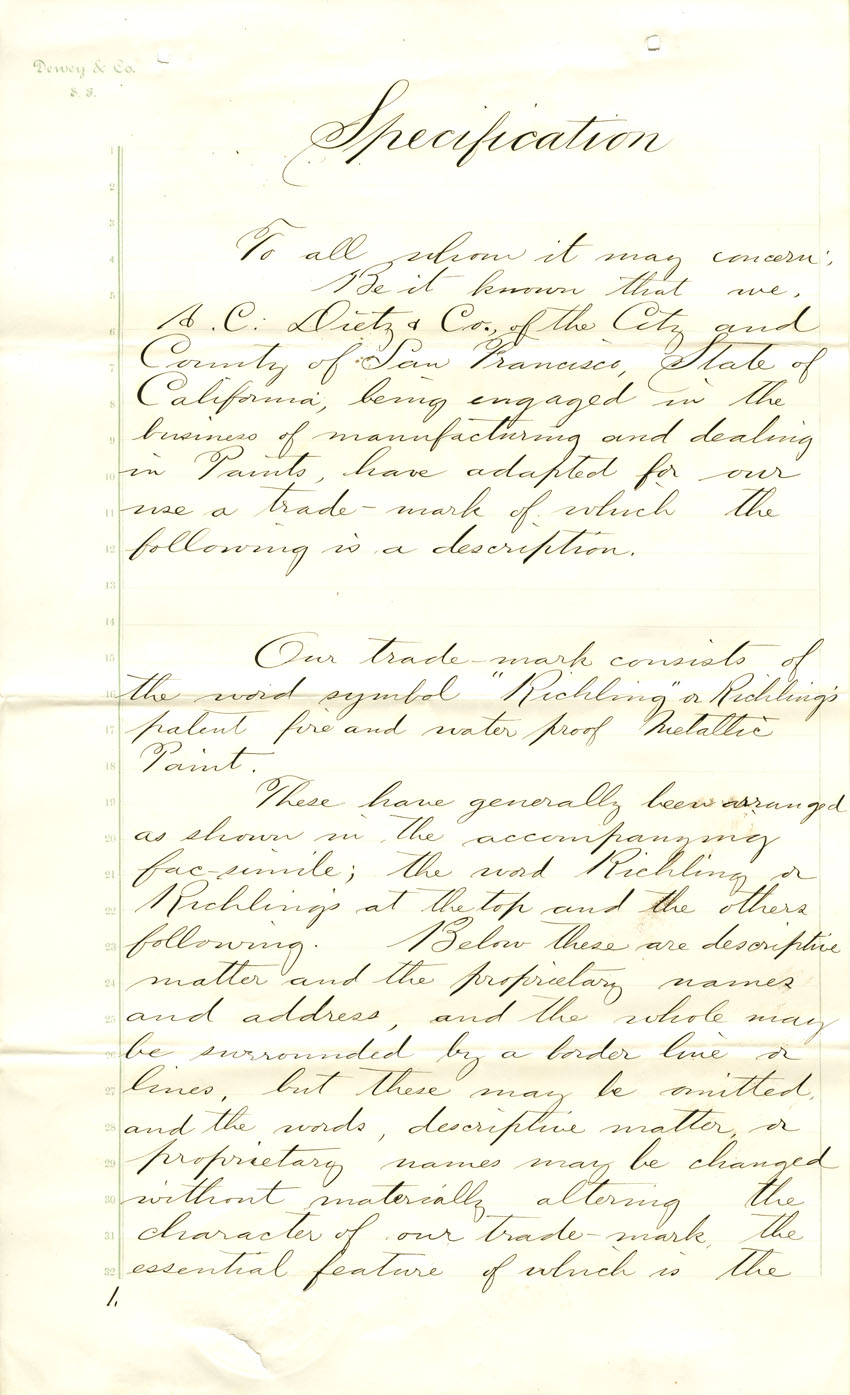 Dewey & Co.
S. F.
Specification
1
2
3
4 To all whom it may concern:
5 Be it known that we,
6 A. C. Dietz & Co., of the City and
7 County of San Francisco, State of
8 California, being engaged in the
9 business of manufacturing and dealing
10 in Paints, have adapted for our
11 use a trade-mark of which the
12 following is a description.
13
14
15 Our trade-mark consists of
16 the word symbol "Richling" or Richling's
17 patent fire and water proof Metallic
18 Paint.
19 These have generally been arranged
20 as shown in the accompanying
21 fac-simile; the word Richling or
22 Richling's at the top and the others
23 following. Below these are descriptive
24 matter and the proprietary names
25 and address, and the whole may
26 be surrounded by a border line or
27 lines, but these may be omitted,
28 and the words, descriptive matter, or
29 proprietary names may be changed
30 without materially altering the
31 character of our trade-mark, the
32 essential feature of which is the
1.